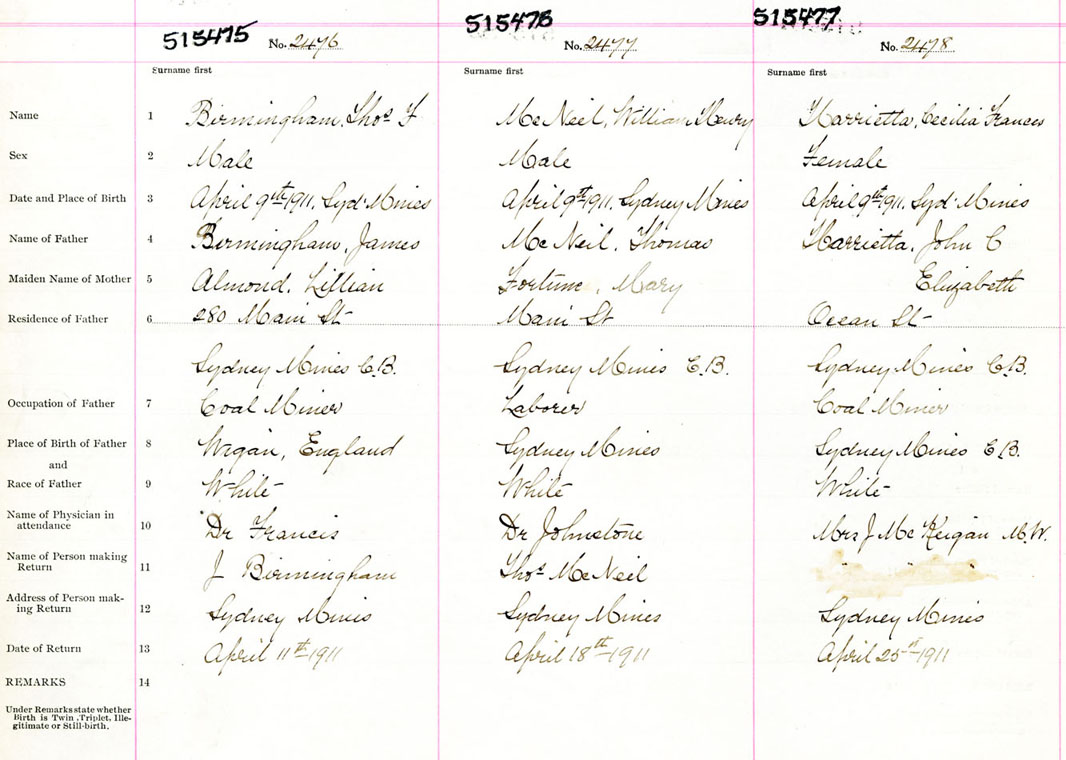 515475 515476 515477
No. 2476 No. 2477 No. 2478
Surname first Surname first Surname first
Name 1 Birmingham, Thos F McNeil, William Henry Harrietta, Cecilia Frances
Sex 2 Male Male Female
Date and Place of Birth 3 April 9th 1911, Syd. Mines April 9th 1911, Sydney Mines April 9th 1911, Syd. Mines
Name of Father 4 Birmingham, James McNeil, Thomas Harrietta, John C
Maiden Name of Mother 5 Almond, Lillian Fortune, Mary Elizabeth
Residence of Father 6 280 Main St Main St Ocean St
Sydney Mines C.B. Sydney Mines C.B. Sydney Mines C.B.
Occupation of Father 7 Coal Miner Laborer Coal Miner
Place of Birth of Father 8 Wigan, England Sydney Mines Sydney Mines C.B.
and
Race of Father 9 White White White
Name of Physician in
attendance 10 Dr Francis Dr Johnstone Mrs J McKeigan M.W.
Name of Person making
Return 11 J Birmingham Thos McNeil " " "
Address of Person mak-
ing Return 12 Sydney Mines Sydney Mines Sydney Mines
Date of Return 13 April 11th 1911 April 18th 1911 April 25st 1911
REMARKS 14
Under Remarks state whether
Birth is Twin, Triplet, Ille-
gitimate or Still-birth.